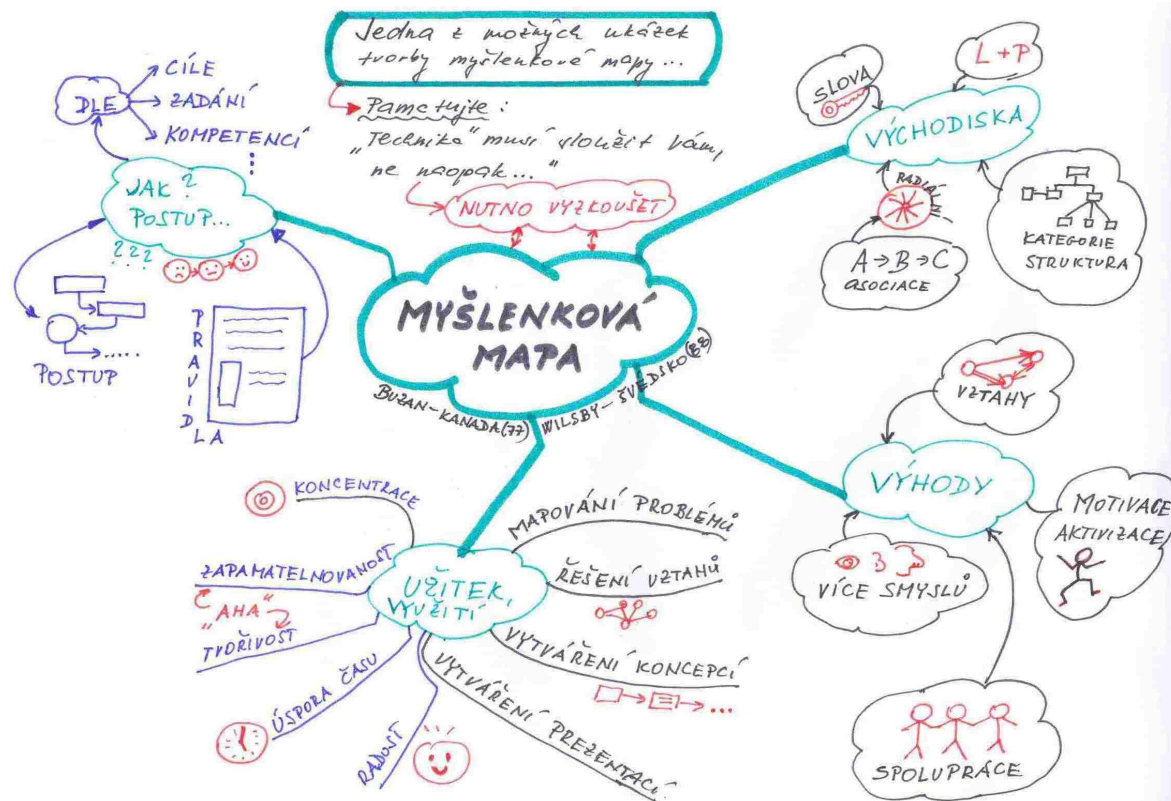 Jedna z možných ukázek
tvorby myšlenkové mapy...
Pamatujte:
„Technika“ musí sloužit vám,
ne naopak...“
NUTNO VYZKOUŠET
MYŠLENKOVÁ
MAPA
BUZAN-KANADA(77) WILSBY-ŠVEDSKO(88)
DLE
CÍLE
ZADÁNÍ
KOMPETENCÍ
JAK?
POSTUP...
???
POSTUP
PRAVIDLA
VÝCHODISKA
SLOVA
L+P
RADIÁ
A→B→C
asociace
KATEGORIE
STRUKTURA
VÝHODY
VZTAHY
MOTIVACE
AKTIVIZACE
VÍCE SMYSLŮ
SPOLUPRÁCE
UŽITEK,
VYUŽITÍ
KONCENTRACE
ZAPAMATELNOVANOST
„AHA“
TVOŘIVOST
ÚSPORA ČASU
RADOST
MAPOVÁNÍ PROBLÉMŮ
ŘEŠENÍ VZTAHŮ
VYTVÁŘENÍ KONCEPCÍ
...
VYTVÁŘENÍ PREZENTACÍ